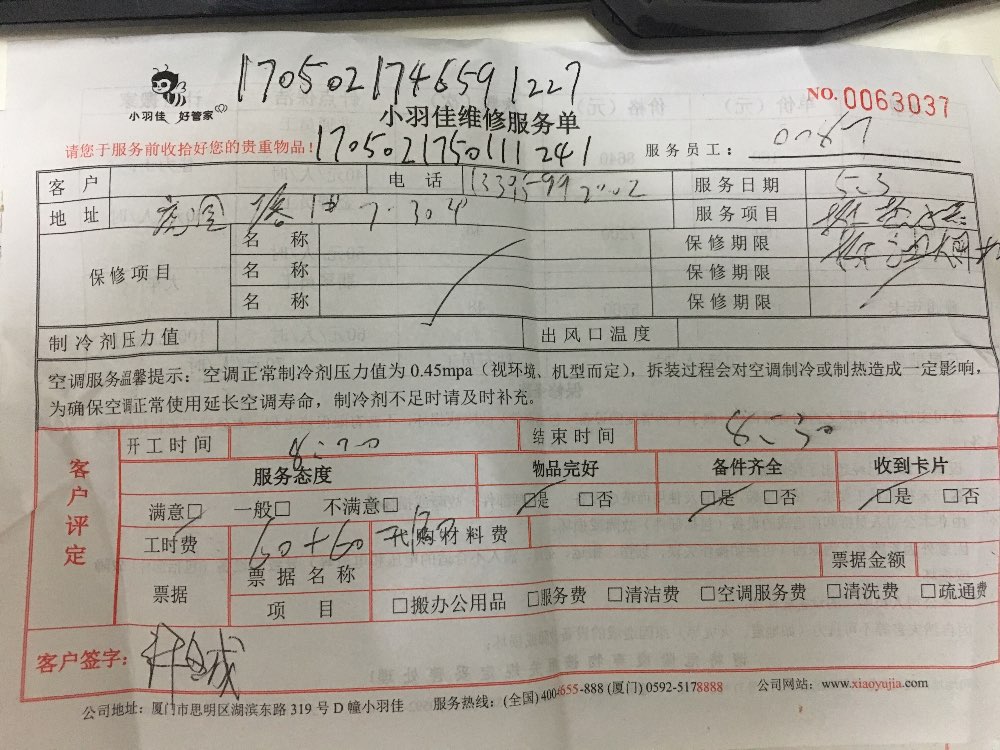 170502174659 1227
小羽佳 好管家
小羽佳维修服务单
NO. 0063037
请您于服务前收拾好您的贵重物品！
170502175011 1241
服务员工：0067
客户 电话 服务日期 5.3
地址 7.304 服务项目
保修项目 名称 保修期限
名称 保修期限
名称 保修期限
制冷剂压力值 出风口温度
空调服务温馨提示：空调正常制冷剂压力值为 0.45mpa（视环境、机型而定），拆装过程会对空调制冷或制热造成一定影响，
为确保空调正常使用延长空调寿命，制冷剂不足时请及时补充。
客户评定
开工时间 结束时间 8:30
服务态度 物品完好 备件齐全 收到卡片
满意□ 一般□ 不满意□ □是 □否 □是 □否 □是 □否
工时费 60+60 代购材料费
票据 票据名称 票据金额
项目 □搬办公用品 □服务费 □清洁费 □空调服务费 □清洗费 □疏通费
客户签字：
公司地址：厦门市思明区湖滨东路 319 号 D 幢小羽佳 服务热线：(全国) 400-6655-888 (厦门) 0592-5178888 公司网站：www.xiaoyujia.com